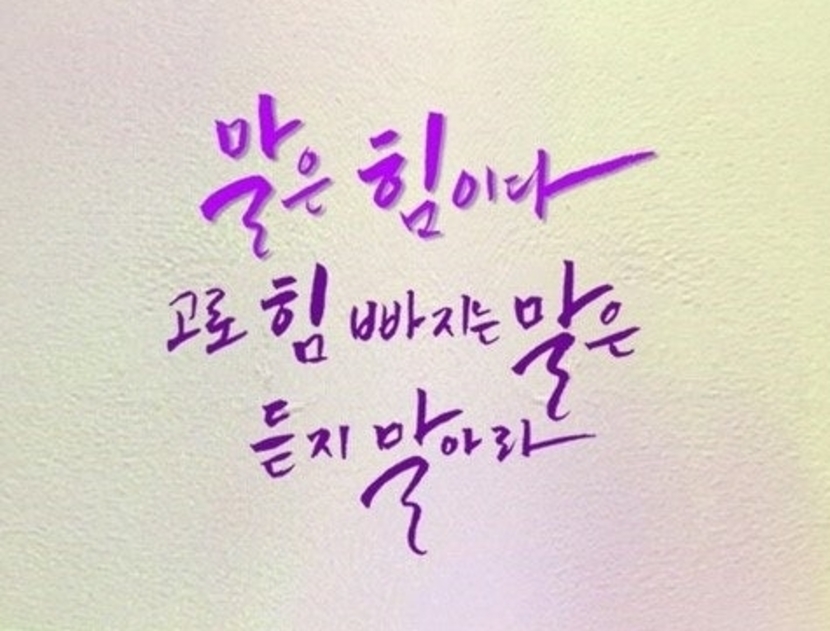 말은 힘이다
고로 힘 빠지는 말은
듣지 말아라